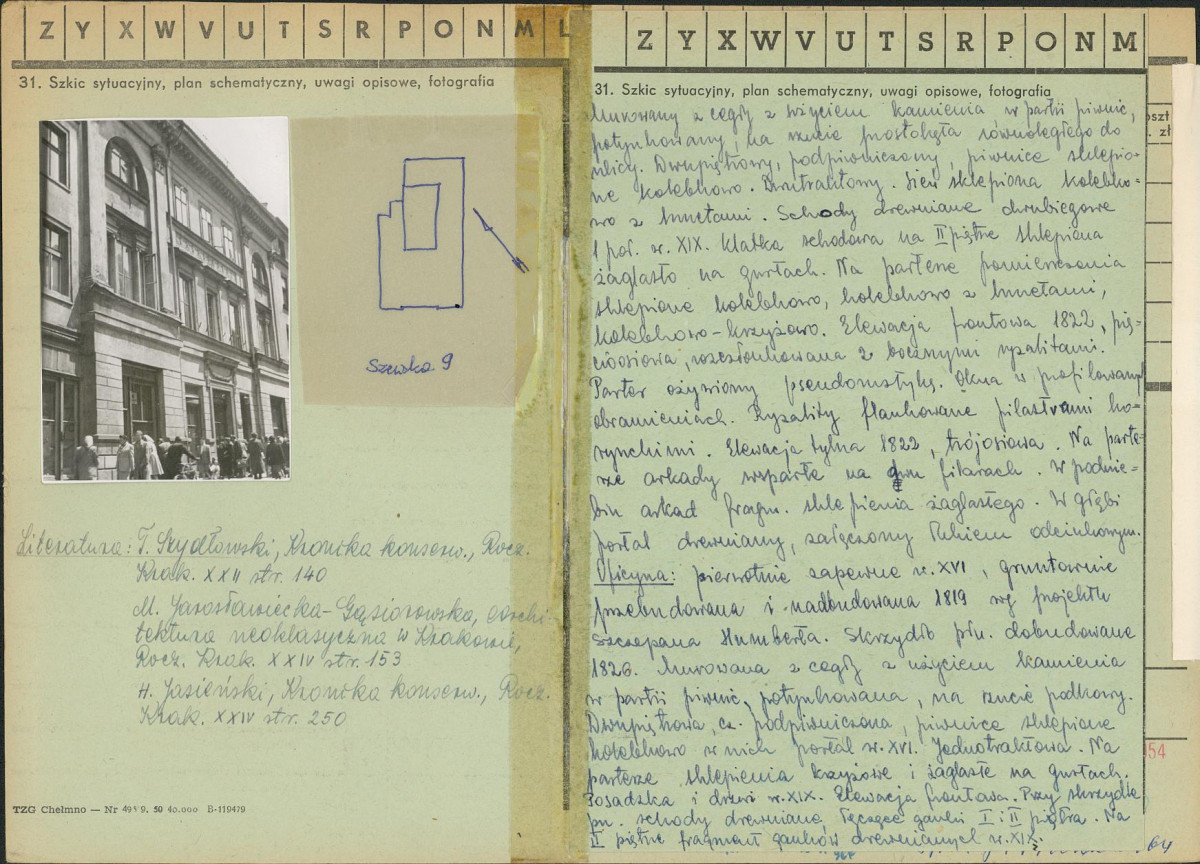 Z Y X W V U T S R P O N M L
31. Szkic sytuacyjny, plan schematyczny, uwagi opisowe, fotografia
Szewska 9
Literatura: T. Szydłowski, Kronika konserw., Rocz.
Krak. XXII str. 140
M. Jarosławiecka-Gąsiorowska, Archi-
tektura neoklasyczna w Krakowie,
Rocz. Krak. XXIV str. 153
H. Jasieński, Kronika konserw., Rocz.
Krak. XXIV str. 250
TZG Chełmno — Nr 50 40.000 B-119479
Z Y X W V U T S R P O N M
31. Szkic sytuacyjny, plan schematyczny, uwagi opisowe, fotografia
Murowany z cegły z użyciem kamienia w partii piwnic,
potynkowany, na rzucie prostokąta równoległego do
ulicy. Dwupiętrowy, podpiwniczony, piwnice sklepio-
ne kolebkowo. Dwutraktowy. Sień sklepiona kolebko-
wo z lunetami. Schody drewniane dwubiegowe
1 poł. w. XIX. Klatka schodowa na II piętrze sklepiona
żaglasto na gurtach. Na parterze pomieszczenia
sklepione kolebkowo, kolebkowo z lunetami,
kolebkowo-krzyżowo. Elewacja frontowa 1822, pię-
cioosiowa, rozczłonkowana 2 bocznymi ryzalitami.
Parter ożywiony pseudorustyką. Okna w profilowanych
obramieniach. Ryzality flankowane pilastrami ko-
rynckimi. Elewacja tylna 1822, trójosiowa. Na parte-
rze arkady wsparte na filarach. W podnie-
biu arkad fragm. sklepienia żaglastego. W głębi
portal drewniany, zamknięty łukiem odcinkowym.
Oficyna: pierwotnie zapewne w. XVI, gruntownie
przebudowana i nadbudowana 1819 wg projektu
Szczepana Humberta. Skrzydło płn. dobudowane
1826. Murowana z cegły z użyciem kamienia
w partii piwnic, potynkowana, na rzucie podkowy.
Dwupiętrowa, cz. podpiwniczona, piwnice sklepione
kolebkowo w nich portal w. XVI. Jednotraktowa. Na
parterze sklepienia krzyżowe i żaglaste na gurtach.
Posadzka i drzwi w. XIX. Elewacja frontowa. Przy skrzydle
pn. schody drewniane łączące ganki I i II piętra. Na
II piętrze fragment ganków drewnianych w. XIX.
64
oszt
. zł
54